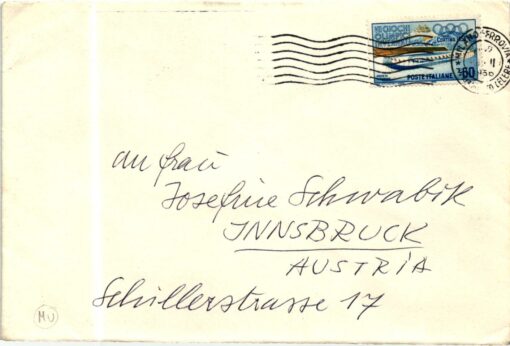 VII GIOCHI
OLIMPICI
CORTINA
POSTE ITALIANE
60
MILANO-FERROVIA
an Frau
Josefine Schwabik
INNSBRUCK
AUSTRIA
Schillerstrasse 17
MU